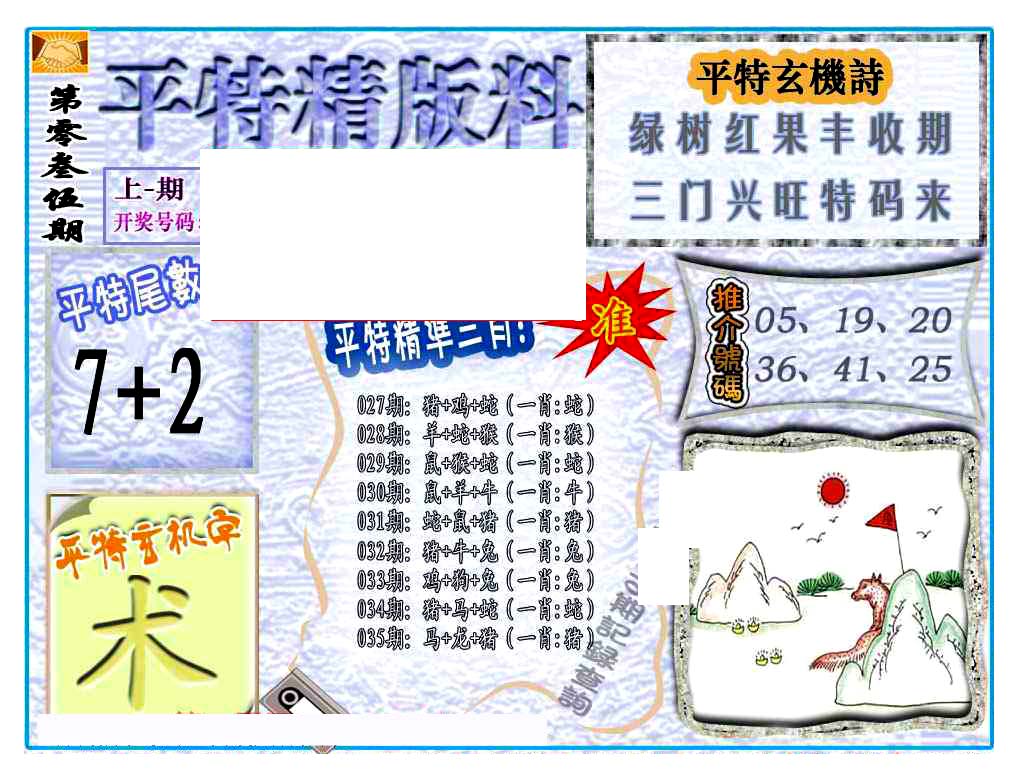 第零叁伍期
平特精版料
上-期
开奖号码:
平特玄機詩
绿树红果丰收期
三门兴旺特码来
平特尾數
7+2
平特精準三肖!
准
推介號碼
05、19、20
36、41、25
027期: 猪+鸡+蛇(一肖:蛇)
028期: 羊+蛇+猴(一肖:猴)
029期: 鼠+猴+蛇(一肖:蛇)
030期: 鼠+羊+牛(一肖:牛)
031期: 蛇+鼠+猪(一肖:猪)
032期: 猪+牛+兔(一肖:兔)
033期: 鸡+狗+兔(一肖:兔)
034期: 猪+马+蛇(一肖:蛇)
035期: 马+龙+猪(一肖:猪)
平特玄机字
术
期記録查詢